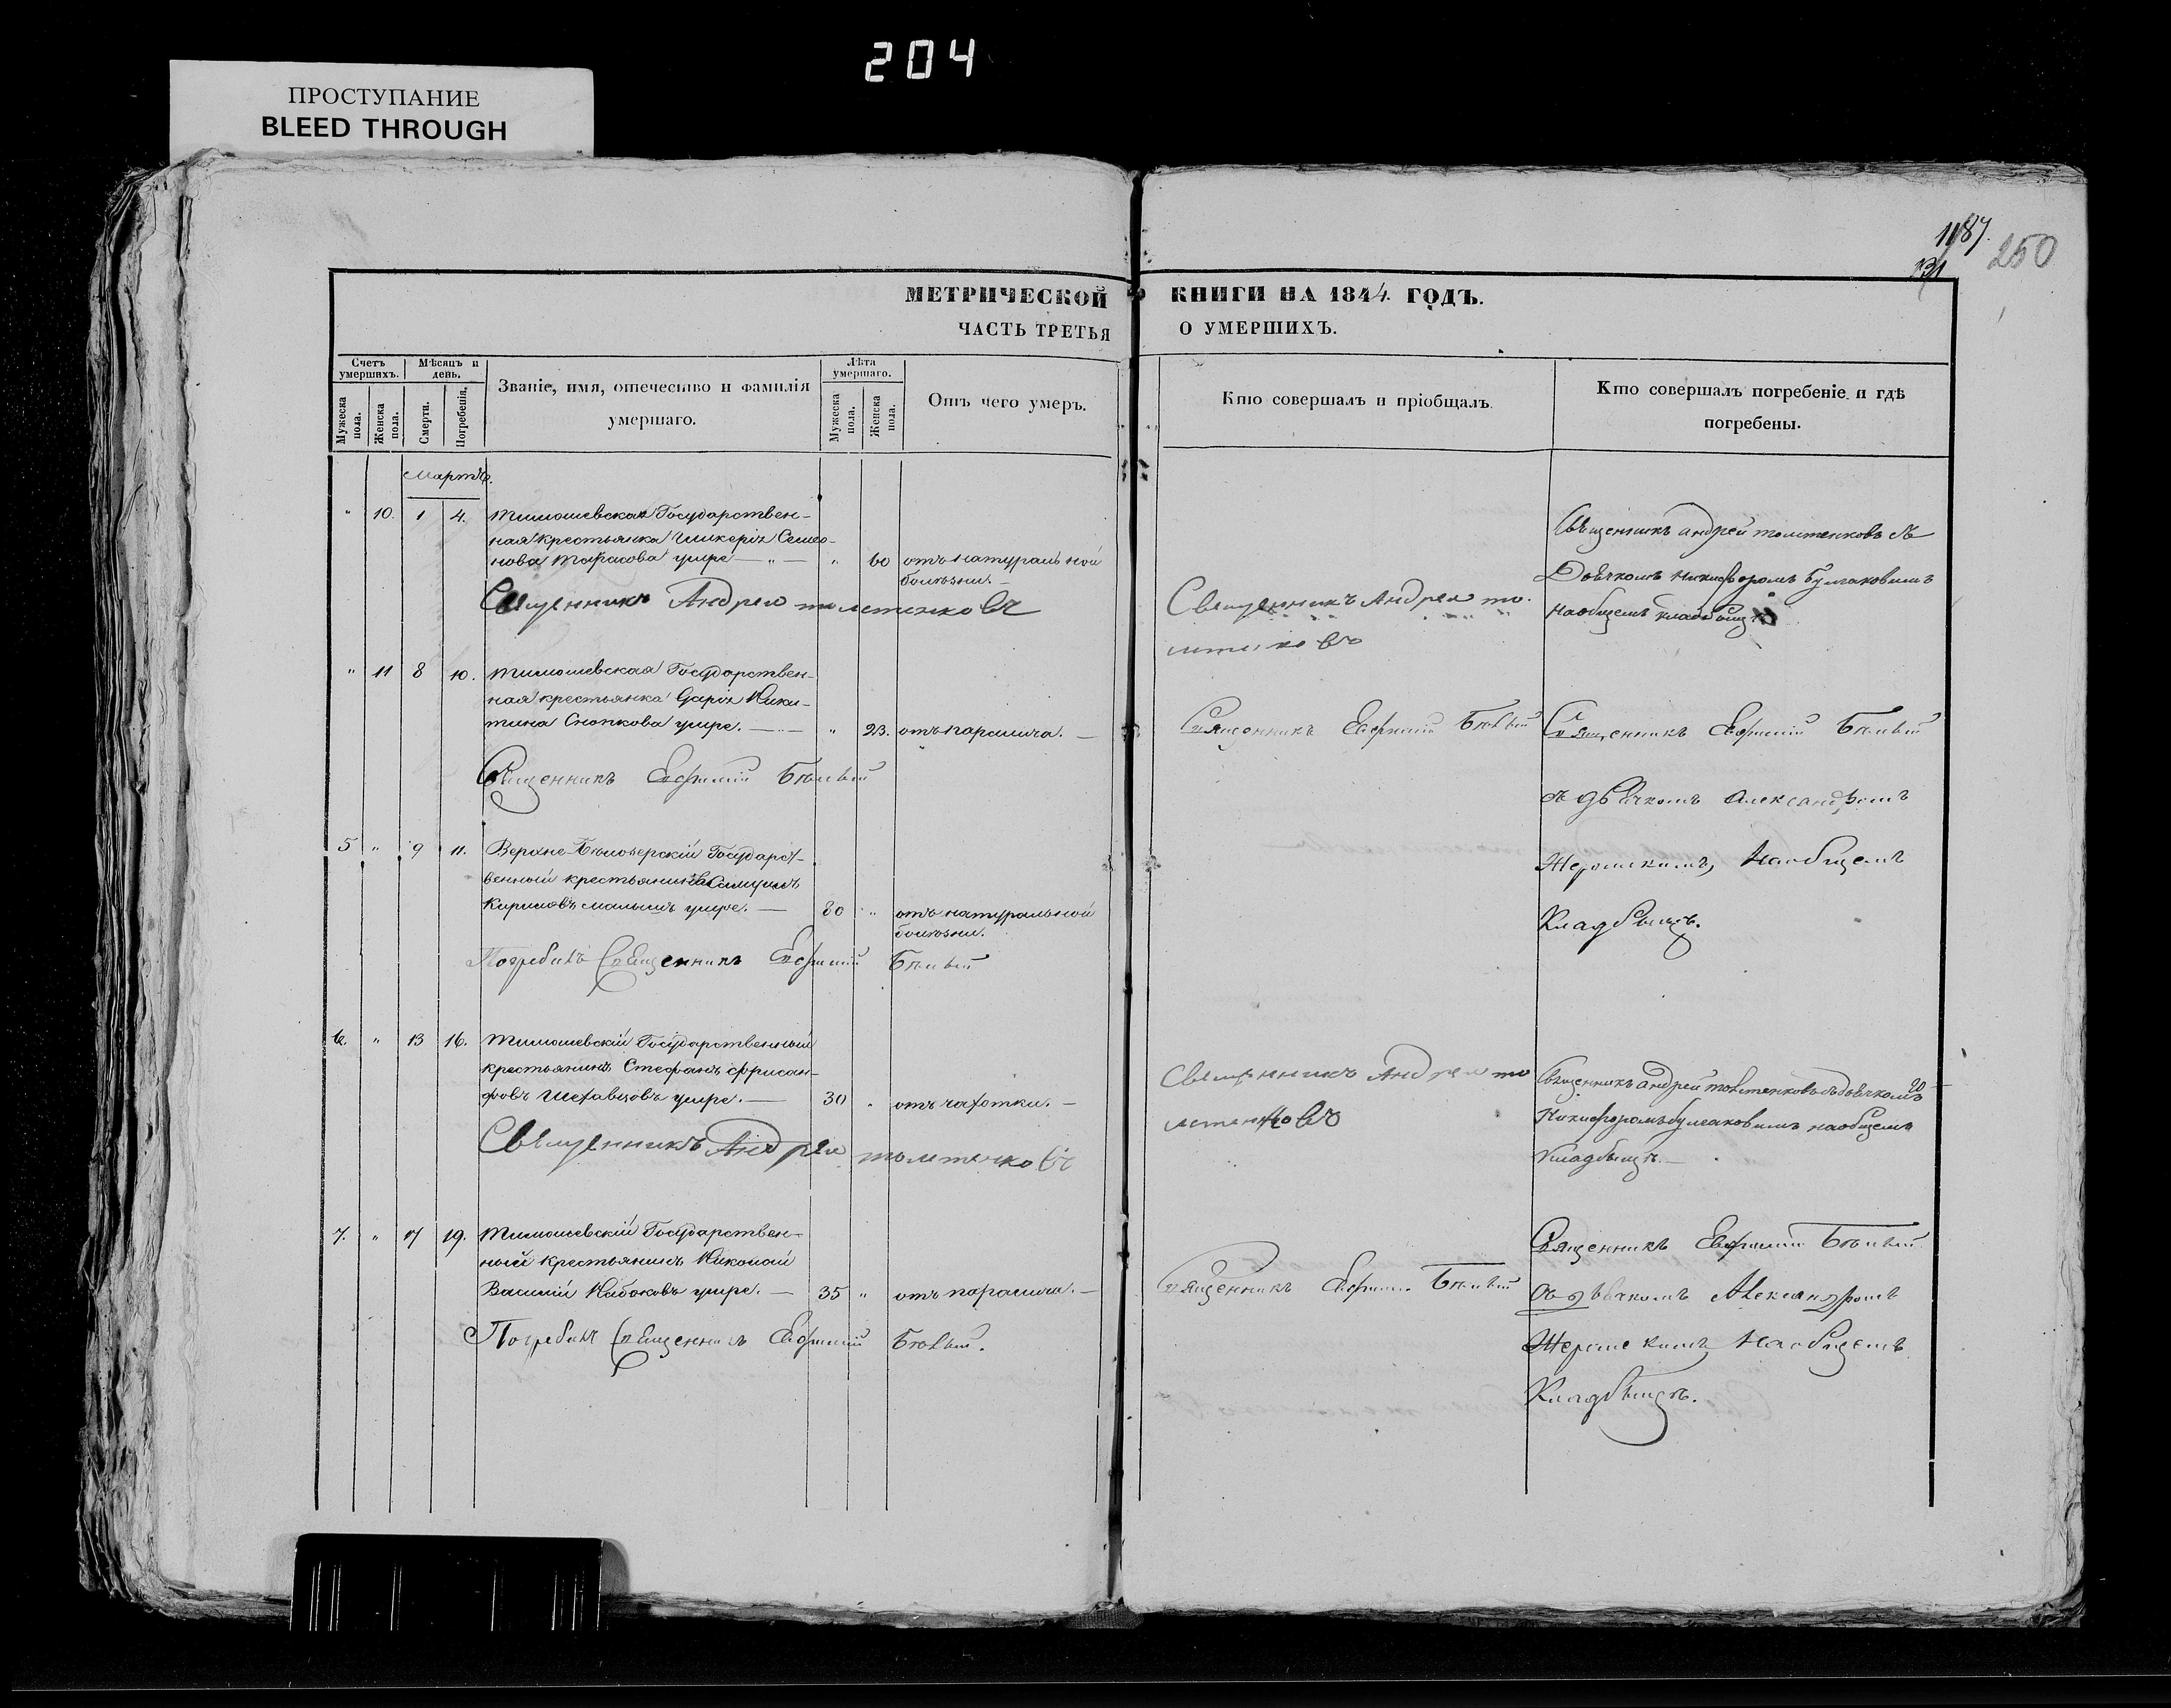 204
ПРОСТУПАНИЕ
BLEED THROUGH
1187.
131
250
МЕТРИЧЕСКОЙ КНИГИ НА 1844. ГОДЪ.
ЧАСТЬ ТРЕТЬЯ О УМЕРШИХЪ.
Счетъ умершихъ.
Мужеска пола.
Женска пола.
Мѣсяцъ и день.
Смерти.
Погребенія.
Званіе, имя, отечество и фамилія
умершаго.
Лѣта умершаго.
Мужеска пола.
Женска пола.
Отъ чего умеръ.
Кто совершалъ и пріобщалъ
Кто совершалъ погребеніе и гдѣ
погребены.
Мартъ.
" 10. 1 4. Тимошевская Государствен-
ная крестьянка Гликерія Семео-
нова Тарасова умре — " — " 60 отъ натуральной
болѣзни. —
Священникъ Андрей толстенковъ
Священникъ Андрей то
лстенковъ
Священникъ андрей толстенковъ съ
Дьячкомъ никифоромъ булгаковымъ
наобщемъ кладбищѣ
" 11 8 10. Тимошевская Государствен-
ная крестьянка Дарія Ники-
тина Снопкова умре. — " 23. отъ паралича. —
Священникъ Евфимій Бѣлый
Священникъ Евфимій Бѣлый
Священникъ Евфимій Бѣлый
съ дьячкомъ Александромъ
Жеромскимъ, Наобщемъ
Кладбищѣ.
5 " 9 11. Верхне-Бѣлозерскій Государст-
венный крестьянинъ Самуилъ
Кириловъ малышъ умре. — 80 " отъ натуральной
болѣзни.
Погребалъ Священникъ Евфимій Бѣлый
6. " 13 16. Тимошевскій Государственный
крестьянинъ Стефанъ Хрисан-
фовъ умре. — 30 " отъ чахотки. —
Священникъ Андрей толстенковъ
Священникъ Андрей то
лстенковъ
Священникъ андрей толстенковъ съ дьячкомъ
Никифоромъ булгаковымъ наобщемъ
Кладбищѣ. —
7. " 17 19. Тимошевскій Государствен-
ный крестьянинъ Николай
Василій Набоковъ умре. — 35 " отъ паралича. —
Погребалъ Священникъ Евфимій Бѣлый.
Священникъ Евфимій Бѣлый
Священникъ Евфимій Бѣлый
съ дьячкомъ Александромъ
Жеромскимъ Наобщемъ
Кладбищѣ.